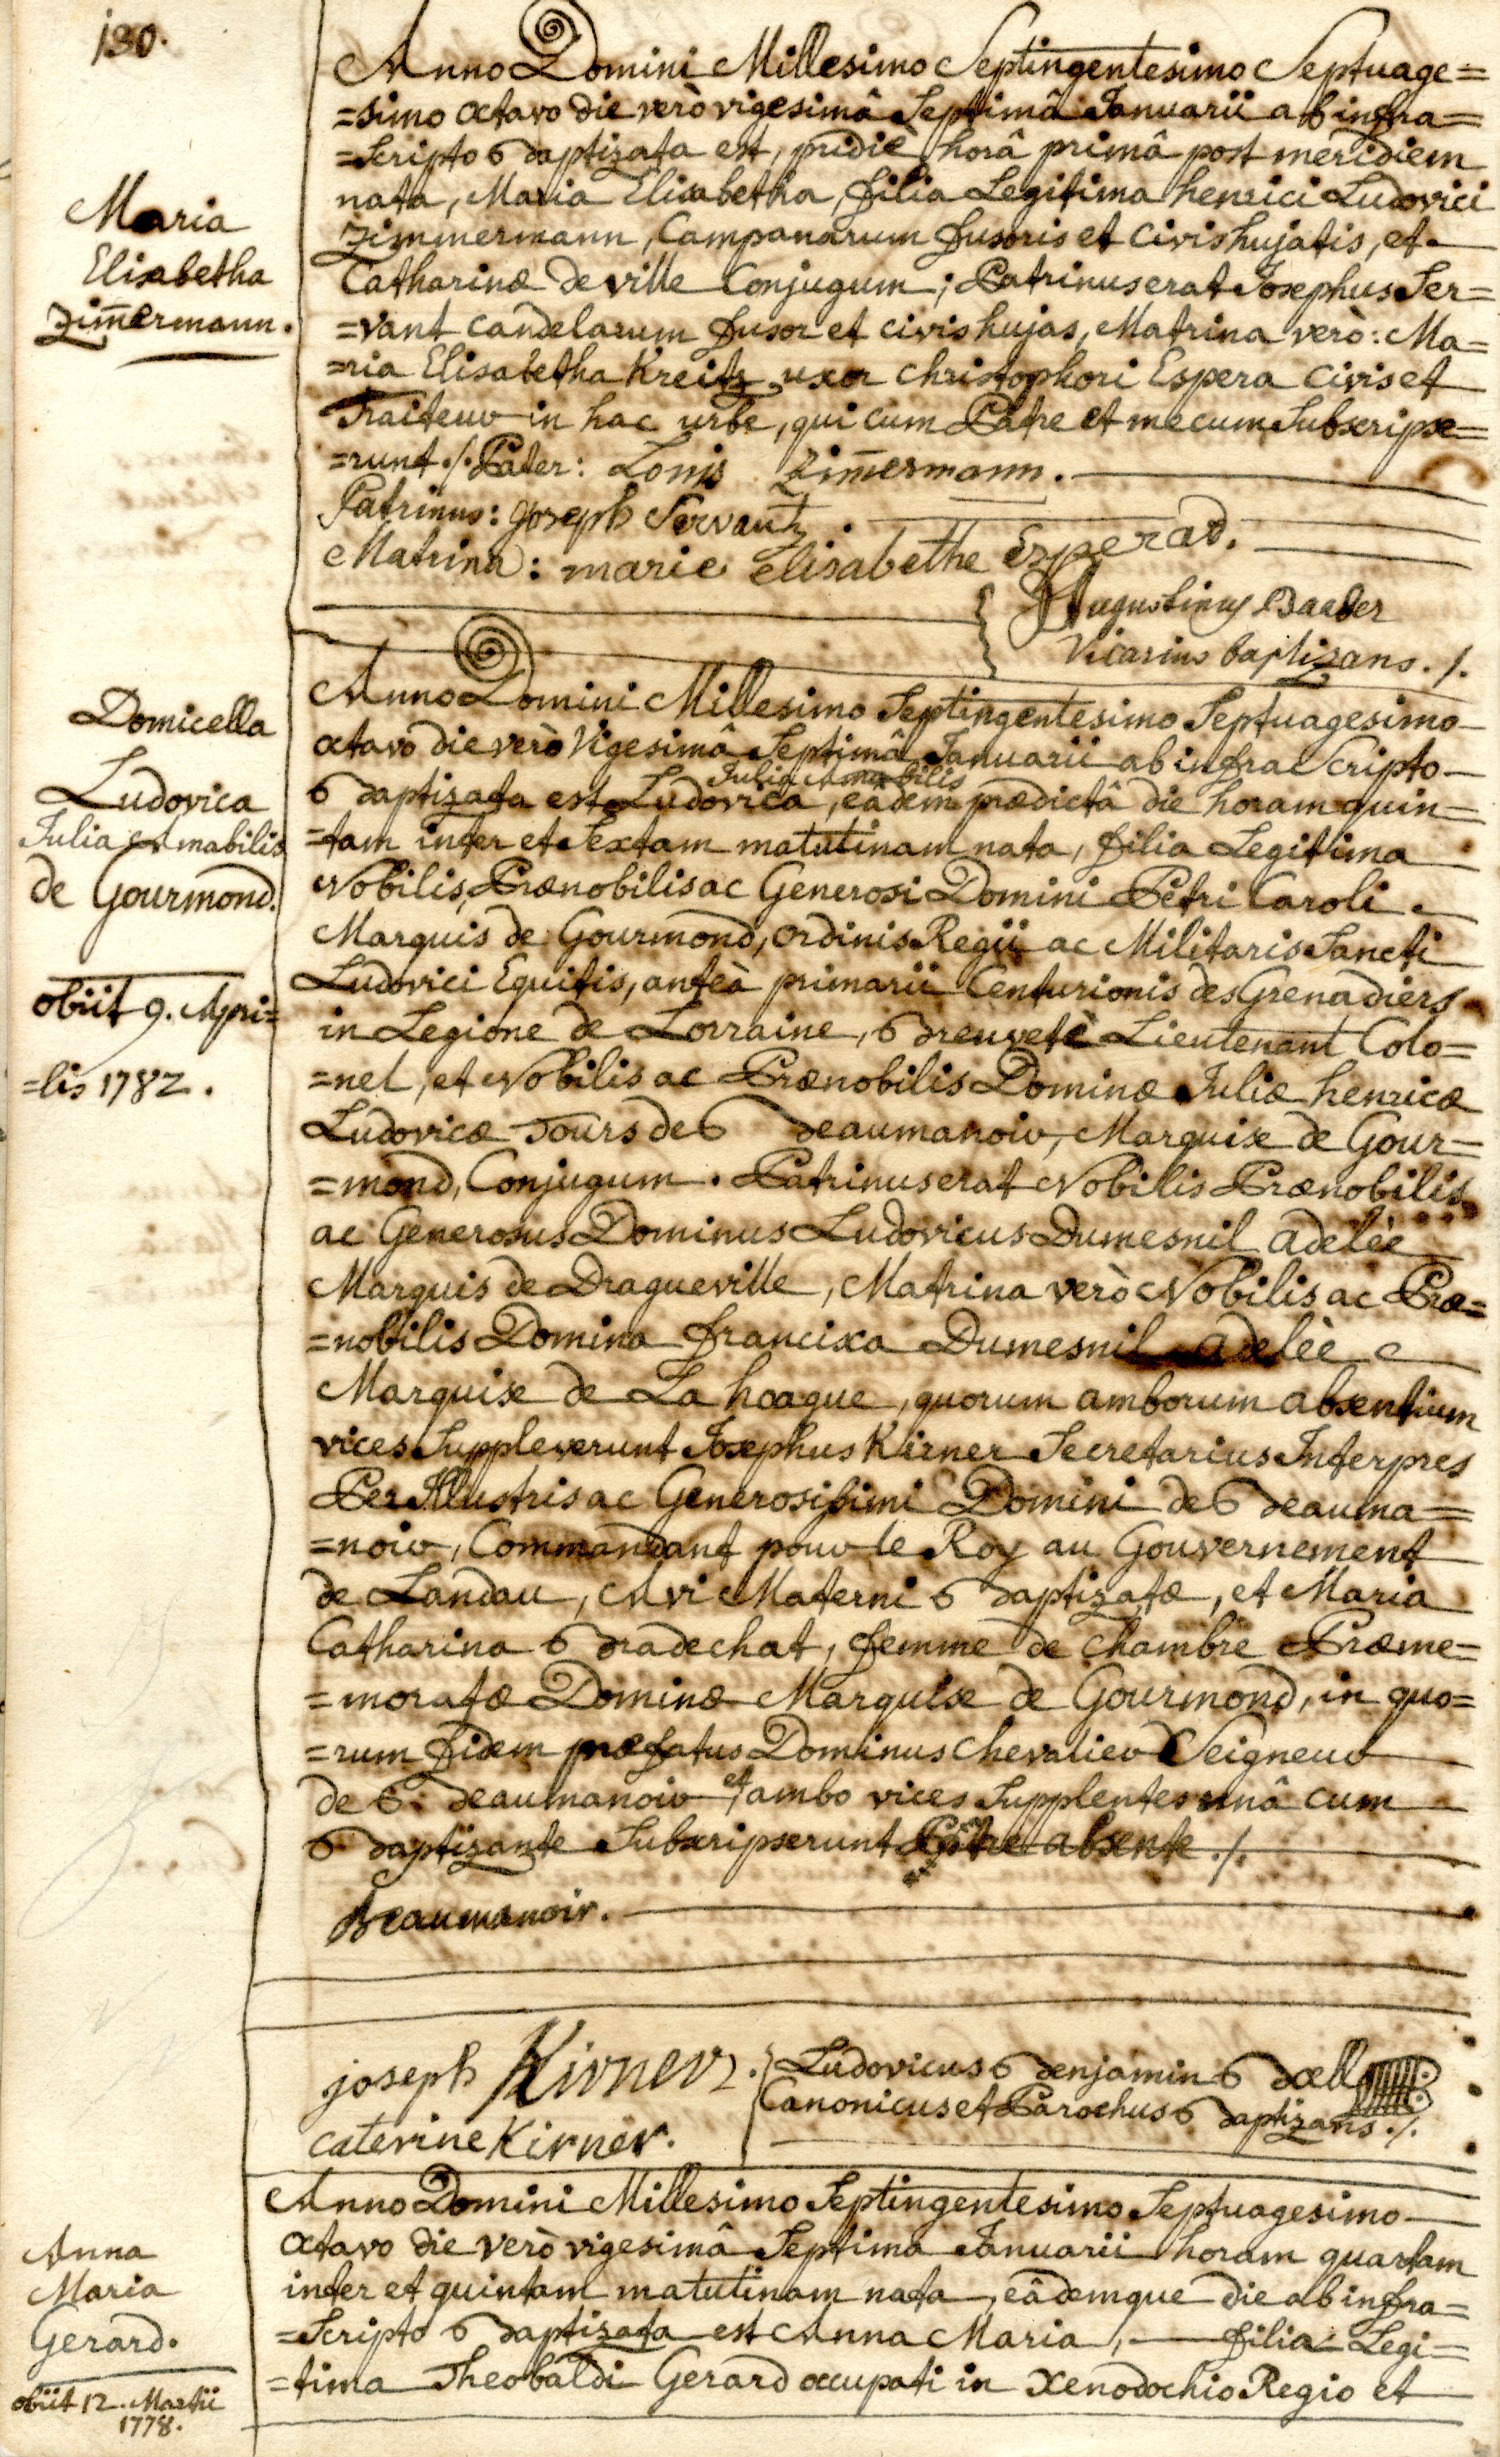 130.
Anno Domini Millesimo Septingentesimo Septuage=
=simo octavo die verò vigesimâ Septimâ Januarii ab infra=
=Scripto Baptizata est, pridiè horâ primâ post meridiem
nata, Maria Elisabetha, filia Legitima henrici Ludovici
Zimmermann, Campanarum fusoris et Civis hujatis, et
Catharinæ de ville Conjugum; Patrinus erat Josephus Ser=
=vant candelarum fusor et civis hujas, Matrina verò: Ma=
=ria Elisabetha Kreitz, uxor Christophori Espera civis et
Traiteur in hac urbe, qui cum Patre et mecum Subscripse=
=runt ./. Pater: Louis Zim̄ermann.
Patrinus: joseph Servantz.
Matrina: marie elisabethe Ezperad.
Augustinus Baader
Vicarius baptizans ./.
Maria
Elisabetha
Zim̄ermann.
Anno Domini Millesimo Septingentesimo Septuagesimo
octavo die verò Vigesimâ Septimâ Januarii ab infra Scripto
Julia Amabilis
Baptizata est Ludovica, eâdem prædictâ die horam quin=
=tam inter et Sextam matutinam nata, filia Legitima
Nobilis, Prænobilis ac Generosi Domini Petri Caroli
Marquis de Gourmond, ordinis Regii ac Militaris Sancti
Ludovici Equitis, anteà primarii Centurionis des Grenadiers
in Legione de Lorraine, Breuveté Lieutenant Colo=
=nel, et Nobilis ac Prænobilis Dominæ Juliæ henricæ
Ludovicæ Tours de Beaumanoir, Marquise de Gour=
=mond, Conjugum. Patrinus erat Nobilis Prænobilis
ac Generosus Dominus Ludovicus Dumesnil adelèe
Marquis de Dragueville, Matrina verò Nobilis ac Præ=
=nobilis Domina francisca Dumesnil adelèe
Marquise de La hoague, quorum amborum absentium
vices Suppleverunt Josephus Kirner Secretarius Interpres
Per Illustris ac Generosissimi Domini de Beauma=
=noir, Commandant pour le Roy au Gouvernement
de Landau, Avi Materni Baptizatæ, et Maria
Catharina Bradechat, femme de Chambre Præme=
=moratæ Dominæ Marquise de Gourmond, in quo=
=rum fidem præfatus Dominus Chevalier Seigneur
de Beaumanoir et ambo vices Supplentes unâ cum
Baptizante Subscripserunt Patre absente ./.
Beaumanoir.
joseph Kirner.
caterine Kirner.
Ludovicus Benjamin Böell
Canonicus et Parochus Baptizans ./.
Domicella
Ludovica
Julia Amabilis
de Gourmond.
obiit 9. Apri=
=lis 1782.
Anno Domini Millesimo Septingentesimo Septuagesimo
octavo die verò vigesimâ Septima Januarii horam quartam
inter et quintam matutinam nata, eâdemque die ab infra=
=Scripto Baptizata est Anna Maria, filia Legi=
=tima Theobaldi Gerard occupati in Xenodochio Regio et
Anna
Maria
Gerard.
obiit 12. Martii
1778.